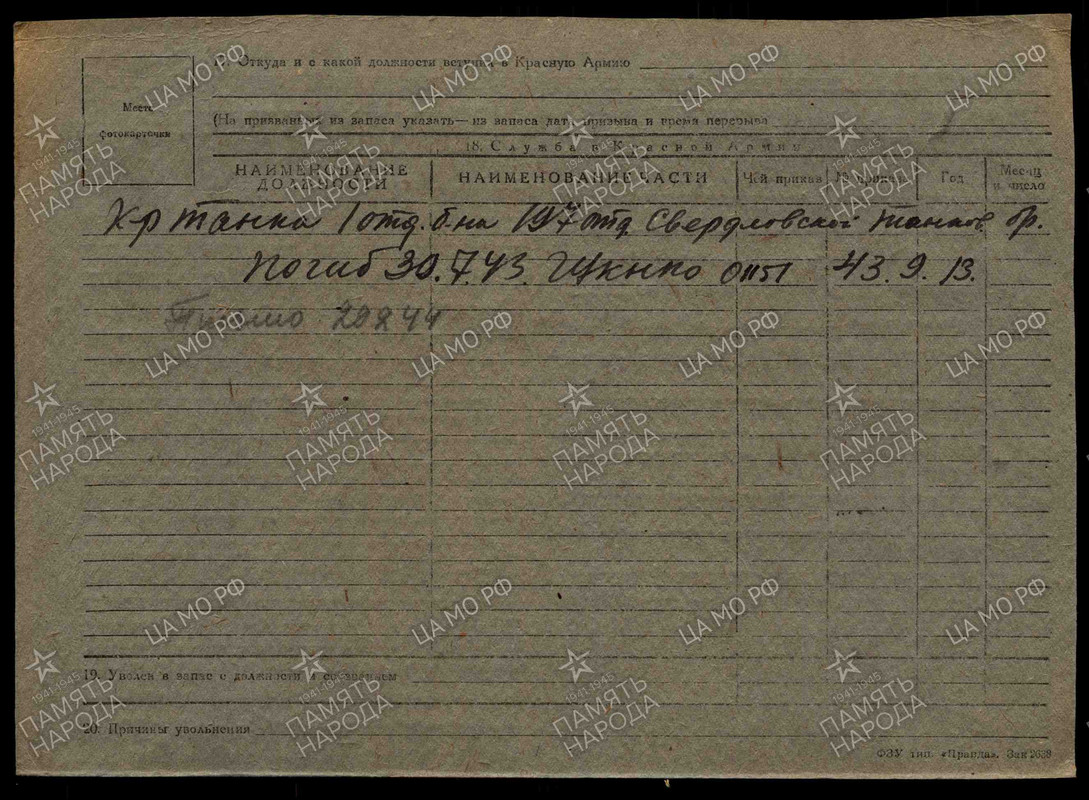 17. Откуда и с какой должности вступил в Красную Армию
Место
фотокарточки
(На призванных из запаса указать—из запаса дату призыва и время перерыва
18. Служба в Красной Армии
НАИМЕНОВАНИЕ ДОЛЖНОСТИ
НАИМЕНОВАНИЕ ЧАСТИ
Чей приказ
№ приказа
Год
Месяц и число
К-р танка 1 отд. б-на 197 отд Свердловской танков. бр.
Погиб 30.7.43. ГУКНКО 01151 43. 9. 13.
20244
19. Уволен в запас с должности и
20. Причины увольнения
ФЗУ тип. «Правда». Зак 2638
ЦА МО РФ
1941-1945
ПАМЯТЬ
НАРОДА